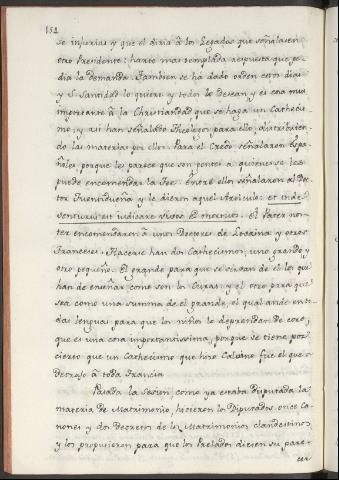 152
se injurias y que el diria â los Legados que señalasen
otro Presidente: harto mas templada respuesta que pe-
dia la demanda. Tambien se ha dado orden estos dias
y S. Santidad lo quiere y todos lo desean y es cosa mui
importante â la Christiandad que se haga un Cathecis-
mo, y asi han señalado Theologos para ello, distribuien-
do las materias por ellos. Para el Credo señalaron Espa-
ñoles, porque les parece que son gentes â quienes se les
puede encomendar la Fee. Entre ellos señalaron al Doc-
tor Fuentidueña y le dieron aquel Articulo: et inde
venturus est iudicare vivos et mortuos. El Pater nos-
ter encomendaron â unos Doctores de Lovaina y otros
Franceses. Hacerse han dos Cathecismos, uno grande y
otro pequeño. El grande para que se sirvan de el los que
han de enseñar como son los Curas: y el otro para que
sea como una summa de el grande, el qual ande en to-
das lenguas, para que los niños lo deprendan de coro,
que es una cosa importantissima, porque se tiene por
cierto que un Cathecismo que hizo Calvino fue el que
destruyo â toda Francia
Pasada la Sesion, como ya estaba disputada la
materia de Matrimonio, hicieron los Diputados once Ca-
nones y dos Decretos de los Matrimonios clandestinos,
y los propusieron para que los Prelados diesen su pare-
cer